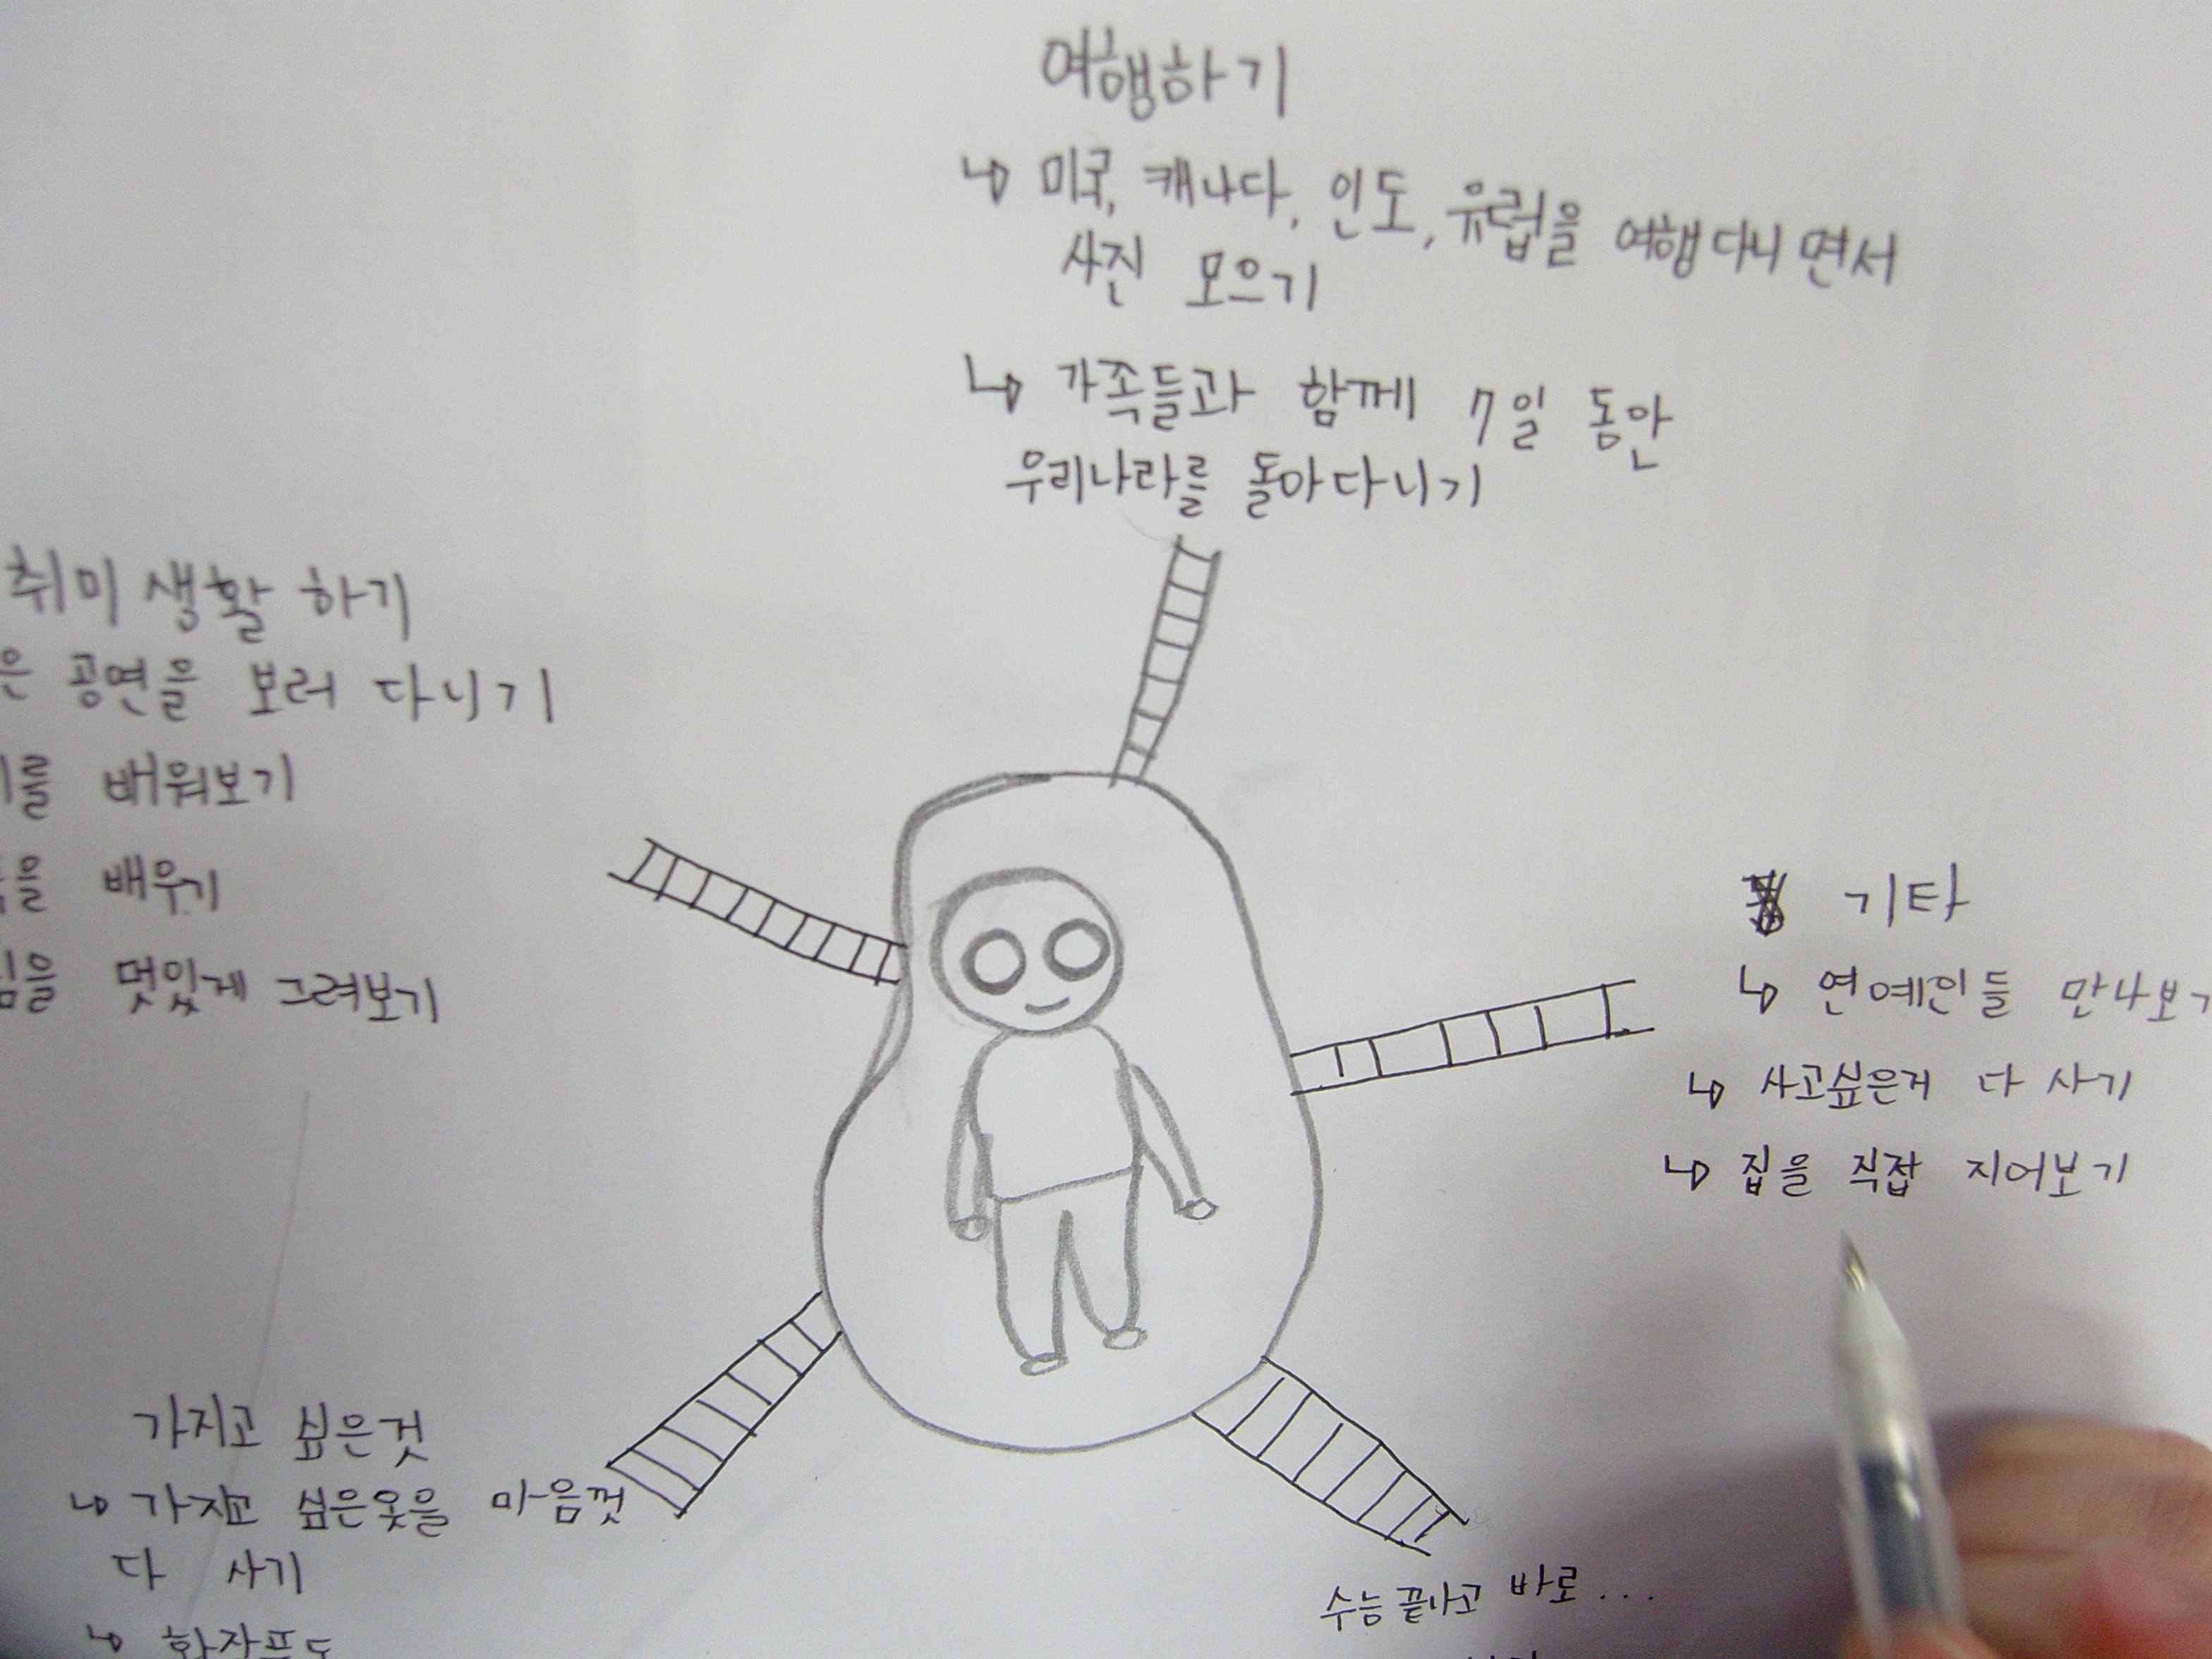 여행하기
↳ 미국, 캐나다, 인도, 유럽을 여행다니면서
사진 모으기
↳ 가족들과 함께 7일 동안
우리나라를 돌아다니기
취미 생활 하기
은 공연을 보러 다니기
를 배워보기
을 배우기
을 멋있게 그려보기
기타
↳ 연예인들 만나보기
↳ 사고싶은거 다 사기
↳ 집을 직접 지어보기
가지고 싶은것
↳ 가지고 싶은옷을 마음껏
다 사기
↳ 화장품도
수능끝나고 바로...